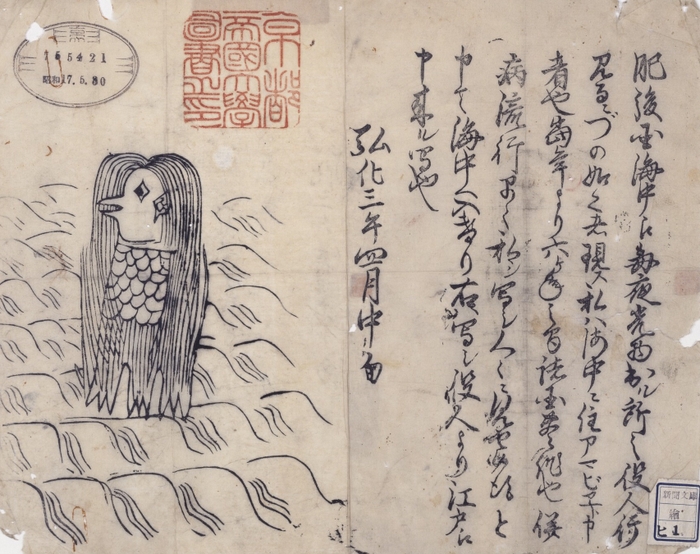 肥後国海中江毎夜光物出ル所之役人行
見るニづの如く者現ス私ハ海中ニ住アマビヱト申
者也當年より六ヶ年之間諸国豊作也併
病流行早々私シ写シ人々ニ見セ候得と
申て海中へ入けり右写シ役人より江戸江
申来ル写也
弘化三年四月中旬
京都
帝國大學
圖書之印
昭和17.5.30
新聞文庫
繪
ヒ1